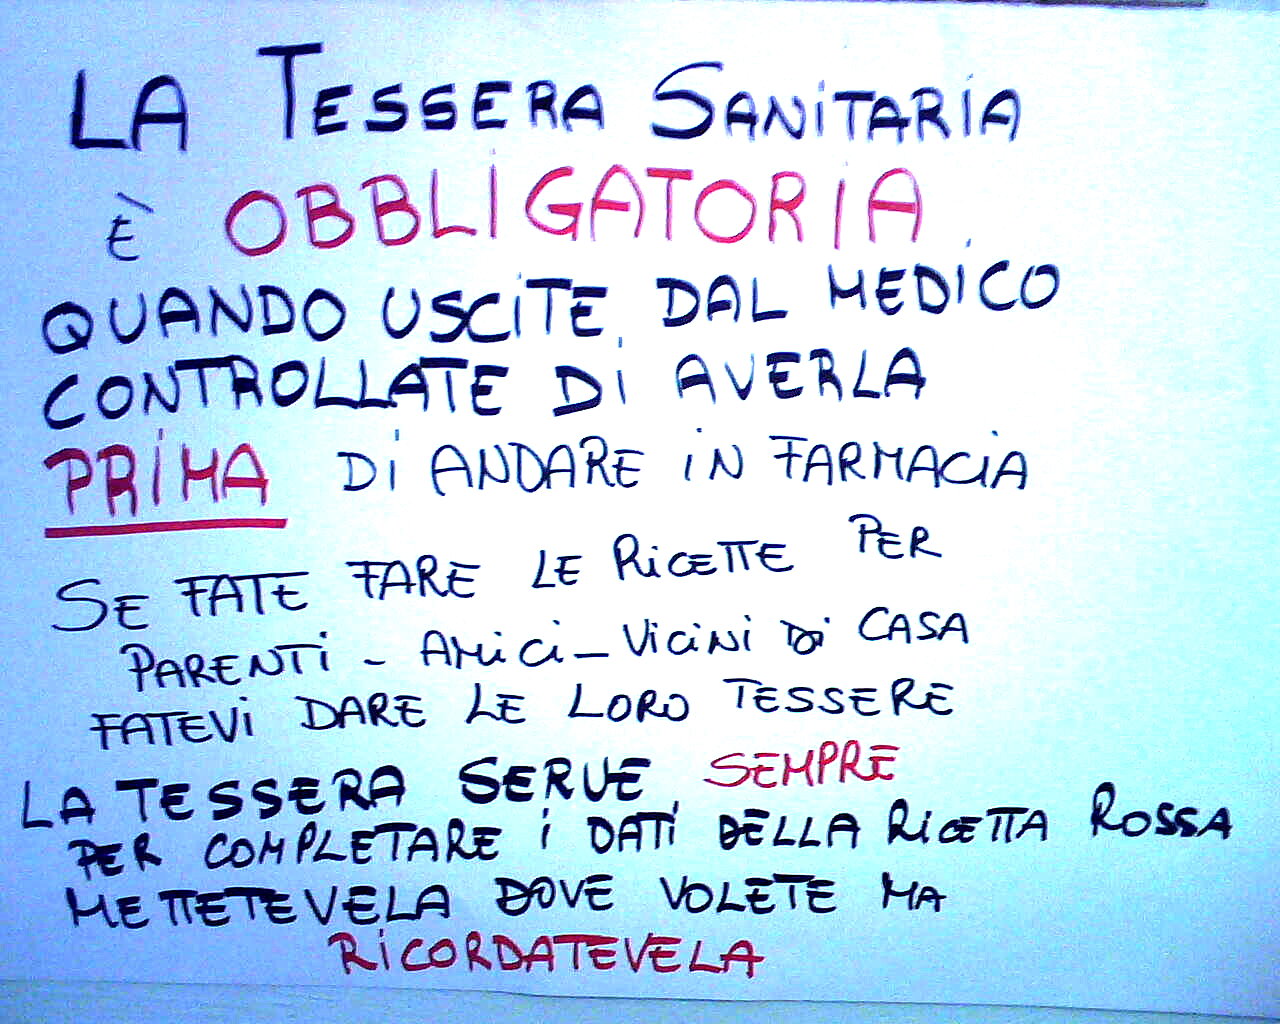 LA TESSERA SANITARIA
È OBBLIGATORIA
QUANDO USCITE DAL MEDICO
CONTROLLATE DI AVERLA
PRIMA DI ANDARE IN FARMACIA
SE FATE FARE LE RICETTE PER
PARENTI - AMICI - VICINI DI CASA
FATEVI DARE LE LORO TESSERE
LA TESSERA SERVE SEMPRE
PER COMPLETARE I DATI DELLA RICETTA ROSSA
METTETEVELA DOVE VOLETE MA
RICORDATEVELA